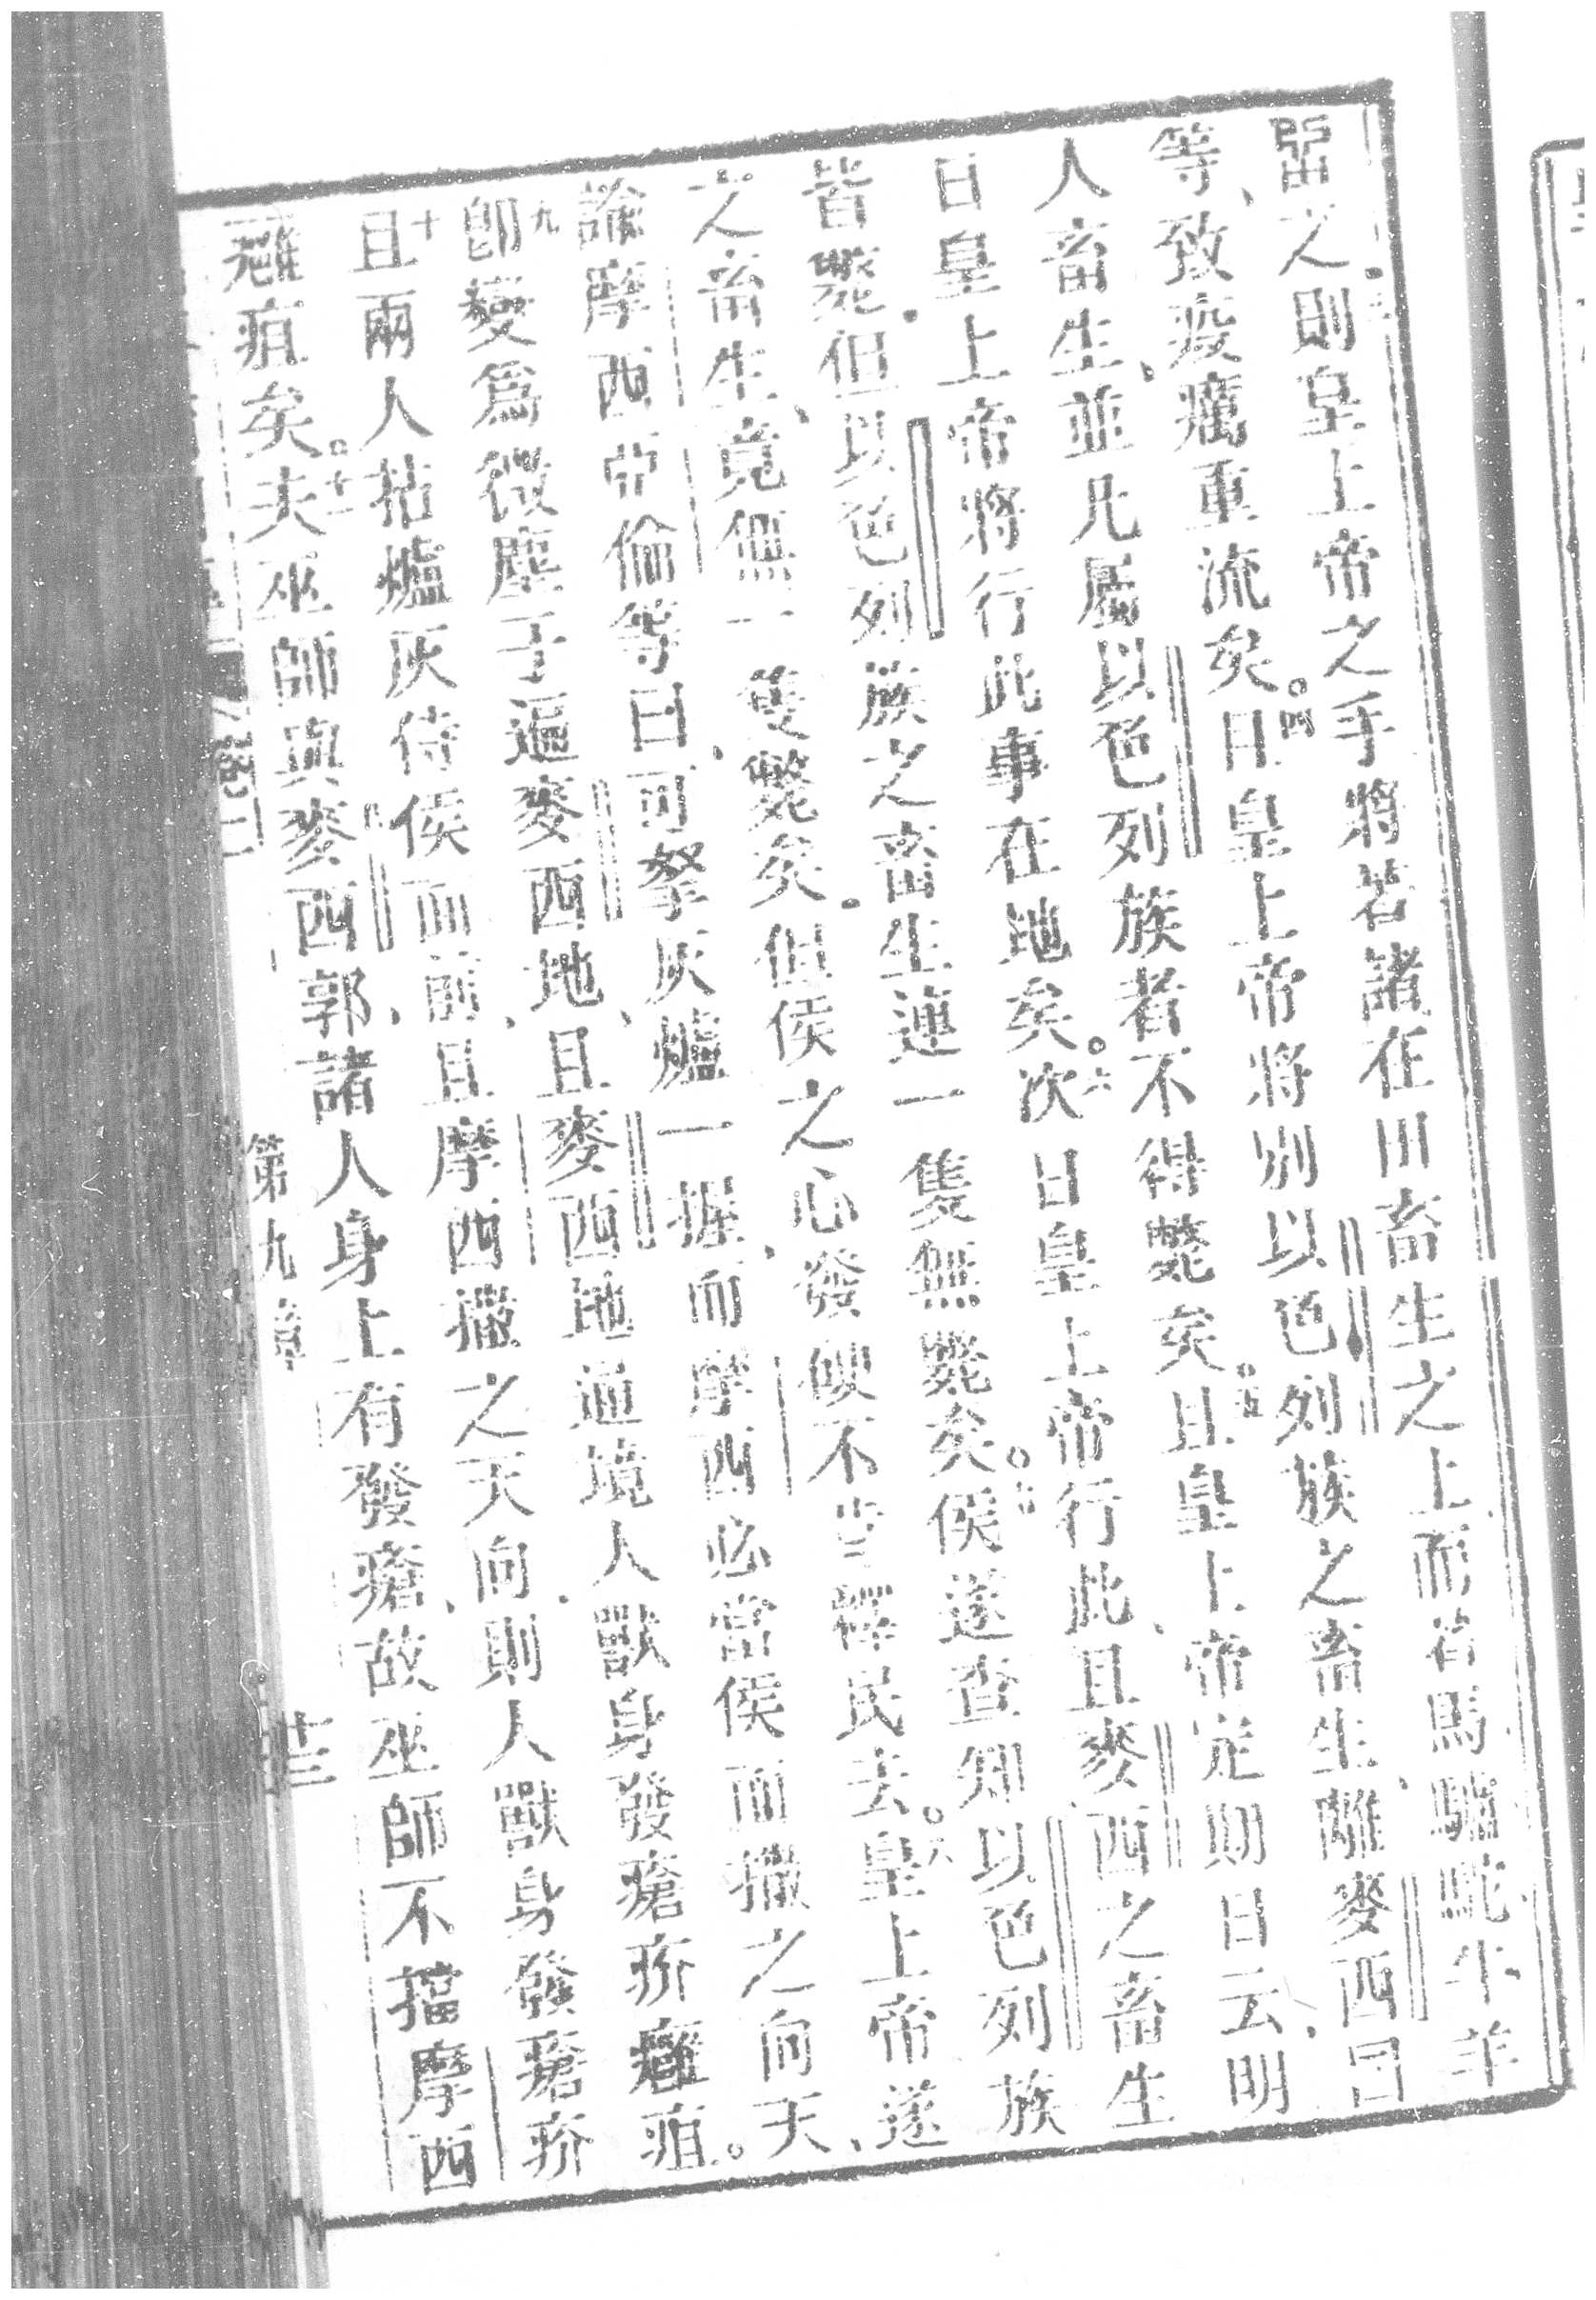 留之則皇上帝之手將若諸在田畜生之上而若馬驢駝牛羊
等、致疫癘重流矣。四且皇上帝將別以色列族之畜生離麥西曰
人畜生、並凡屬以色列族者不得斃矣。五且皇上帝定期日云、明
日皇上帝將行此事在地矣。六次日皇上帝行此、且麥西之畜生
皆斃、但以色列族之畜生連一隻無斃矣。七侯遂查知以色列族
之畜生、竟無一隻斃矣。但侯之心發硬不肯釋民去。八皇上帝遂
諭摩西亞倫等曰、可拏灰爐一握、而摩西必當侯而撒之向天、
九卽變爲微塵子遍麥西地、且麥西地通境人獸身發瘡疥癰疽。
十且兩人拈爐灰侍侯面前、且摩西撒之天向、則人獸身發瘡疥
癰疽矣。十一夫巫師與麥西郭、諸人身上有發瘡、故巫師不擋摩西
第九章 十三